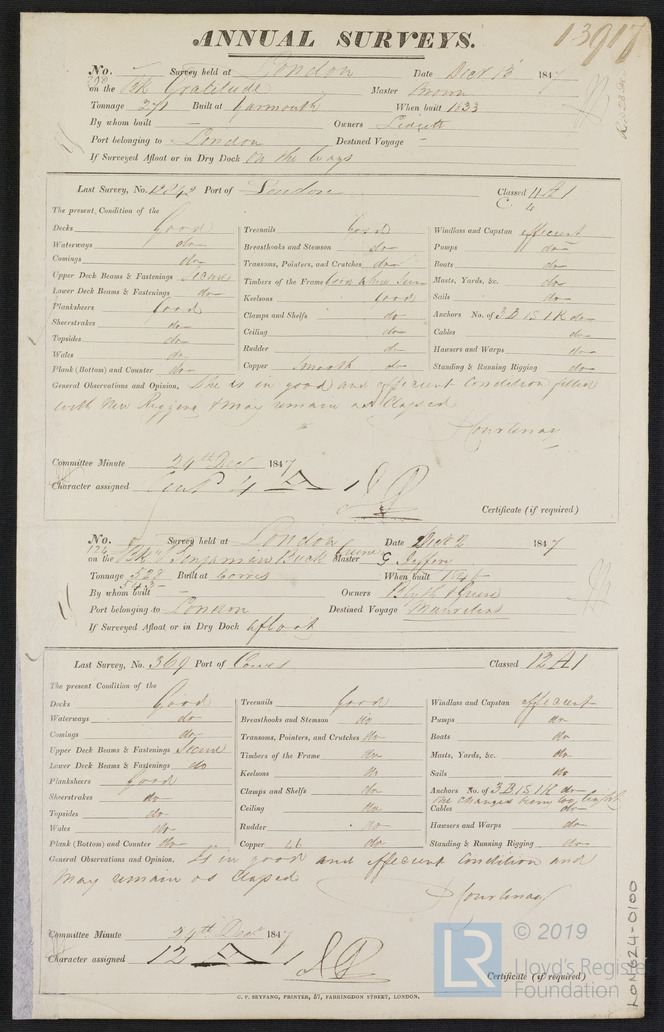 13917
ANNUAL SURVEYS.
No. Survey held at London Date Dec 13 1847
on the Bk Gratitude Master Brown
Tonnage 271 Built at Yarmouth When built 1833
By whom built — Owners Lidgett
Port belonging to London Destined Voyage —
If Surveyed Afloat or in Dry Dock on the ways
Last Survey, No. Port of London Classed A1
The present Condition of the
Decks Good
Waterways do
Comings do
Upper Deck Beams & Fastenings Secure
Lower Deck Beams & Fastenings do
Planksheers Good
Sheerstrakes do
Topsides do
Wales do
Plank (Bottom) and Counter do
Treenails Good
Breasthooks and Stemson do
Transoms, Pointers, and Crutches do
Timbers of the Frame
Keelsons Good
Clamps and Shelfs do
Ceiling do
Rudder do
Copper Smooth do
Windlass and Capstan efficient
Pumps do
Boats do
Masts, Yards, &c. do
Sails do
Anchors No. of 3B 1S 1K do
Cables do
Hawsers and Warps do
Standing & Running Rigging do
General Observations and Opinion. She is in good and efficient Condition fitted
with New Rigging & may remain as Classed
Courtenay
Committee Minute 29th Decr 1847
Character assigned A 1
Certificate (if required)
No. Survey held at London Date Decr 2 1847
124
on the Bk Benjamin Buck Greene Master
Tonnage 528 Built at Cowes When built 1846
543
By whom built — Owners Blyth & Greene
Port belonging to London Destined Voyage Mauritius
If Surveyed Afloat or in Dry Dock afloat
Last Survey, No. 369 Port of Cowes Classed 12 A1
The present Condition of the
Decks Good
Waterways do
Comings do
Upper Deck Beams & Fastenings Secure
Lower Deck Beams & Fastenings do
Planksheers Good
Sheerstrakes do
Topsides do
Wales do
Plank (Bottom) and Counter do
Treenails Good
Breasthooks and Stemson do
Transoms, Pointers, and Crutches do
Timbers of the Frame do
Keelsons do
Clamps and Shelfs do
Ceiling do
Rudder do
Copper 46 do
Windlass and Capstan efficient
Pumps do
Boats do
Masts, Yards, &c. do
Sails do
Anchors No. of 3B 1S 1K do
one changed being too light
Cables do
Hawsers and Warps do
Standing & Running Rigging do
General Observations and Opinion. Is in good and efficient Condition and
May remain as Classed
Courtenay
Committee Minute 24th Decr 1847
Character assigned 12 A 1
Certificate (if required)
C. F. SEYFANG, PRINTER, 57, FARRINGDON STREET, LONDON.
LON624-0100
LR
© 2019
Lloyd's Register
Foundation